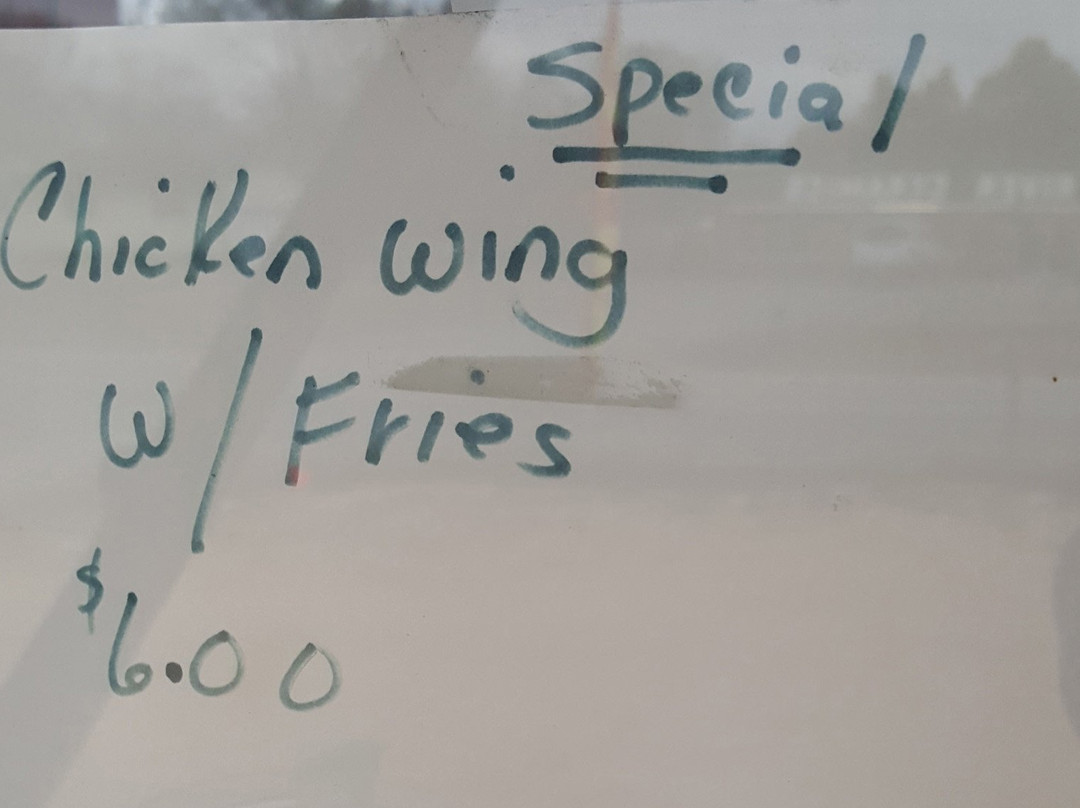 Special
Chicken Wing
W/Fries
$6.00